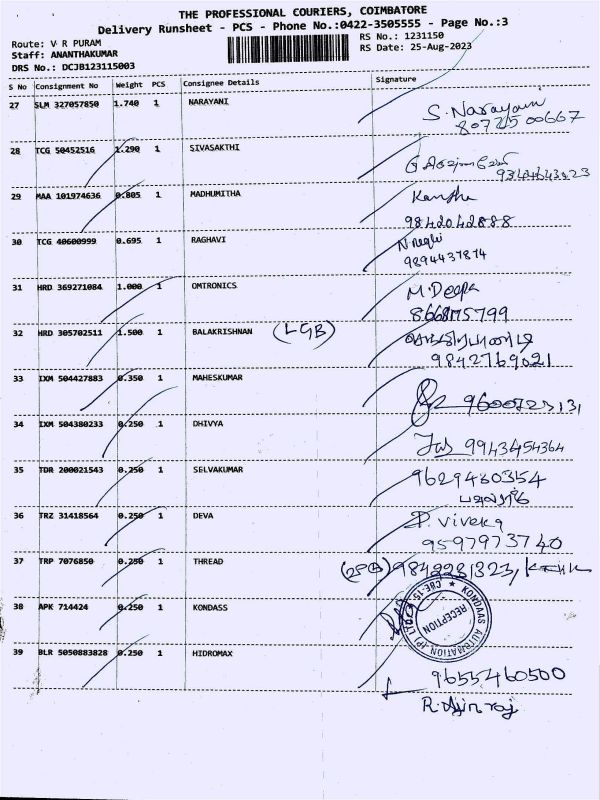 THE PROFESSIONAL COURIERS, COIMBATORE
Delivery Runsheet - PCS - Phone No.:0422-3505555 - Page No.:3
Route: V R PURAM
RS No.: 1231150
Staff: ANANTHAKUMAR
RS Date: 25-Aug-2023
DRS No.: DCJB123115003
S No Consignment No Weight PCS Consignee Details Signature
27 SLM 327057850 1.740 1 NARAYANI S. Narayani
8072500667
28 TCG 50452516 1.290 1 SIVASAKTHI
29 MAA 101974636 0.805 1 MADHUMITHA
9842042888
30 TCG 40600999 0.695 1 RAGHAVI
9894437874
31 HRD 369271084 1.000 1 OMTRONICS M. Deepa
8668175799
32 HRD 305702511 1.500 1 BALAKRISHNAN (LGB)
9842769021
33 IXM 504427883 0.350 1 MAHESKUMAR
34 IXM 504380233 0.250 1 DHIVYA 9943454364
35 TDR 200021543 0.250 1 SELVAKUMAR 9629480354
36 TRZ 31418564 0.250 1 DEVA P. Viveka
9597973740
37 TRP 7076850 0.250 1 THREAD 9842231323,
38 APK 714424 0.250 1 KONDASS
KONDAAS AUTOMATION (P) LTD CBE-15
RECEPTION
39 BLR 5050883828 0.250 1 HIDROMAX 9655460500